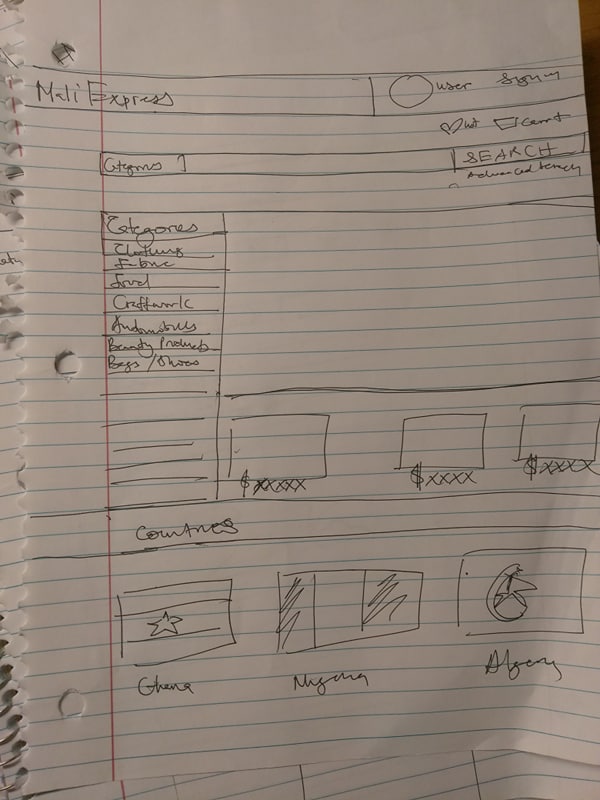 Mali Express
user Sign in
Cart
Categories
SEARCH
Advanced Search
Categories
Clothing
Fabric
Food
Craftwork
Automobiles
Beauty Products
Bags / Shoes
$ xxxxx
$ xxxx
$ xxxx
Countries
Ghana
Nigeria